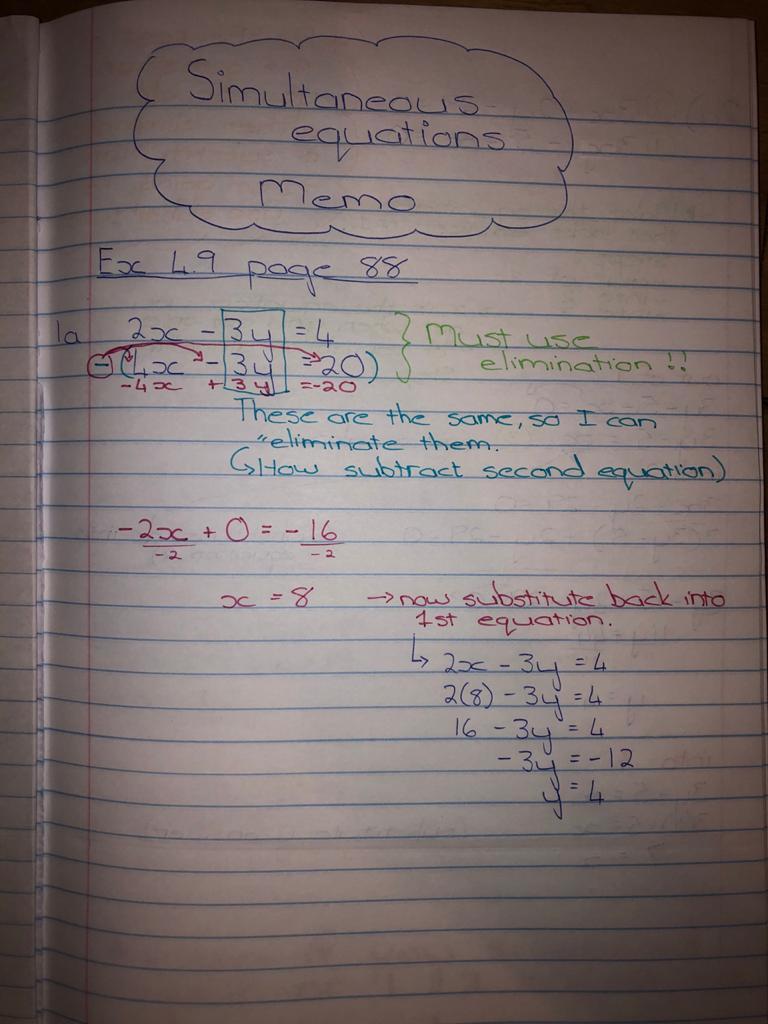 Simultaneous
equations
Memo
Ex 4.9 page 88
1a 2x - 3y = 4 } Must use
-(4x - 3y = 20) elimination !!
-4x + 3y = -20
These are the same, so I can
"eliminate them.
↳How subtract second equation)
-2x + 0 = -16
-2 -2
x = 8 → now substitute back into
1st equation.
↳ 2x - 3y = 4
2(8) - 3y = 4
16 - 3y = 4
- 3y = -12
y = 4